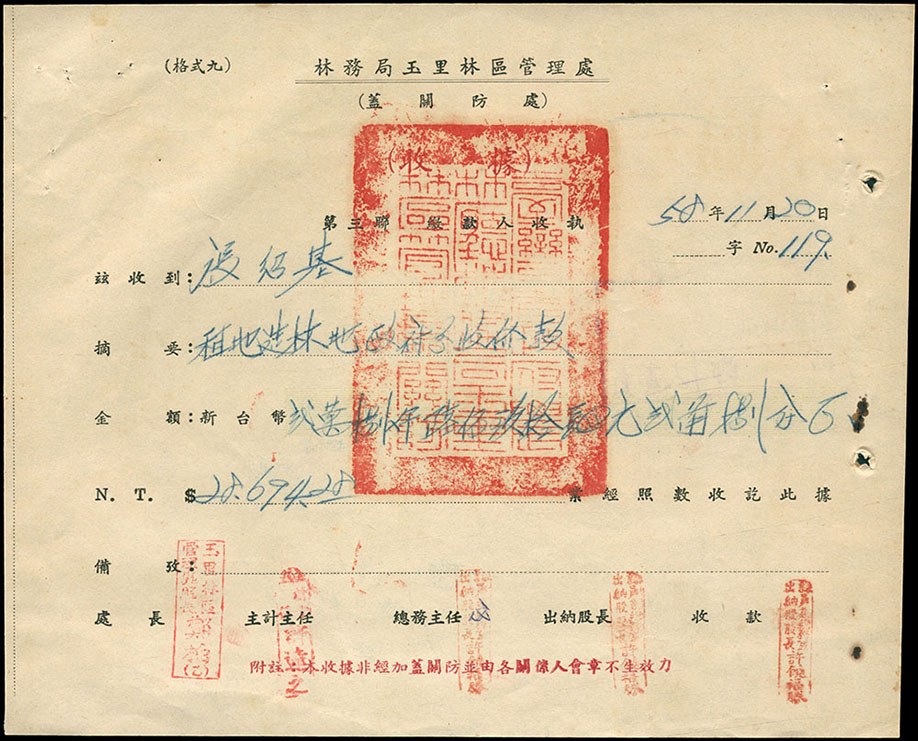 (格式九)
林務局玉里林區管理處
(蓋關防處)
(收據)
58年11月20日
第三聯 繳款人收執
字 No. 119.
茲收到：張紹基
摘要：租地造林地政府分收价款
金額：新台幣 弍萬捌仟陸佰玖拾肆元弍角捌分正
N. T. $28.694.28 業經照數收訖此據
備攷：
處長 主計主任 總務主任 出納股長 收款
附註：本收據非經加蓋關防並由各關係人會章不生效力